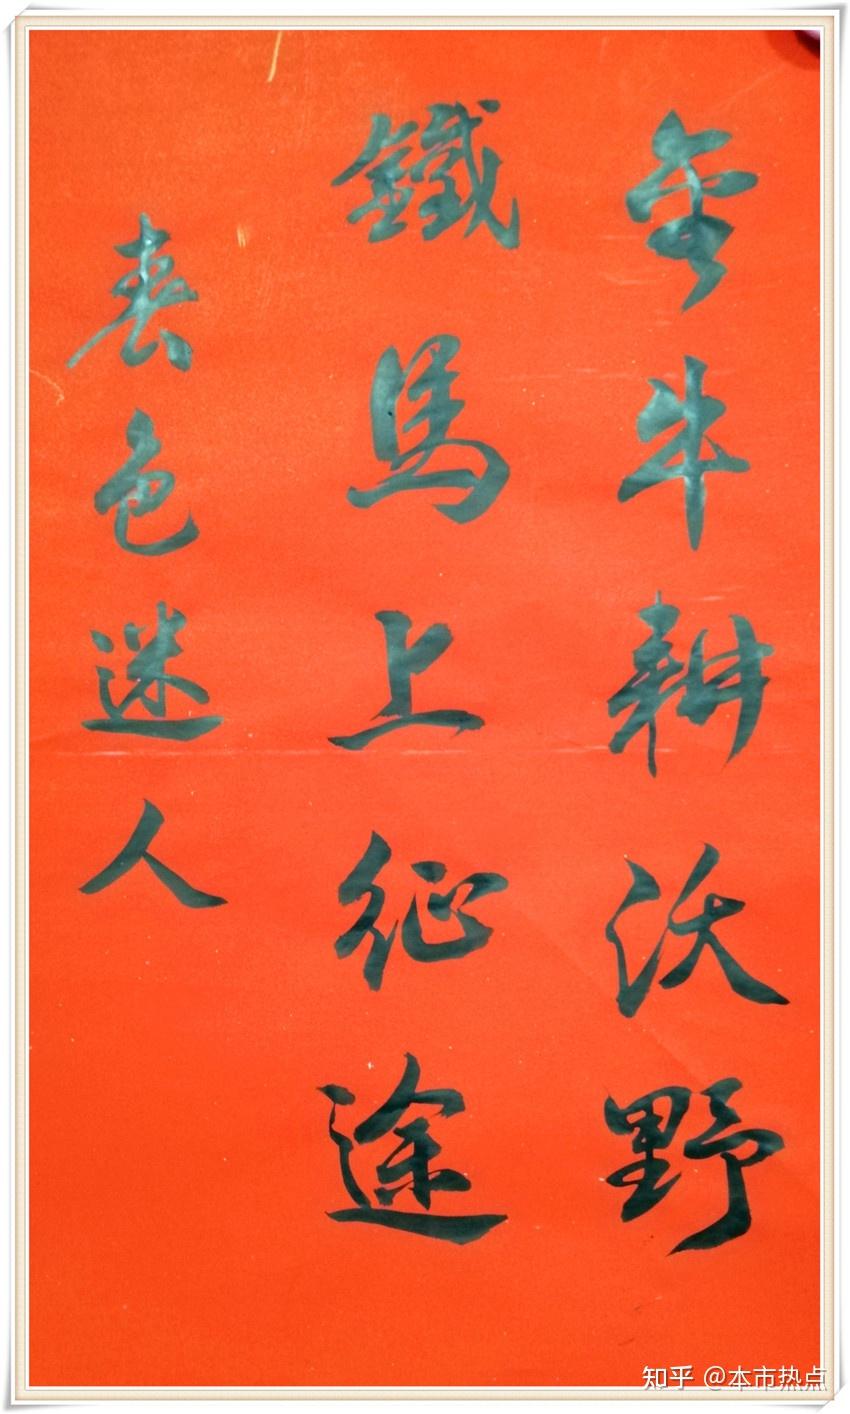 金牛耕沃野
鐵馬上征途
春色迷人
知乎 @本市热点